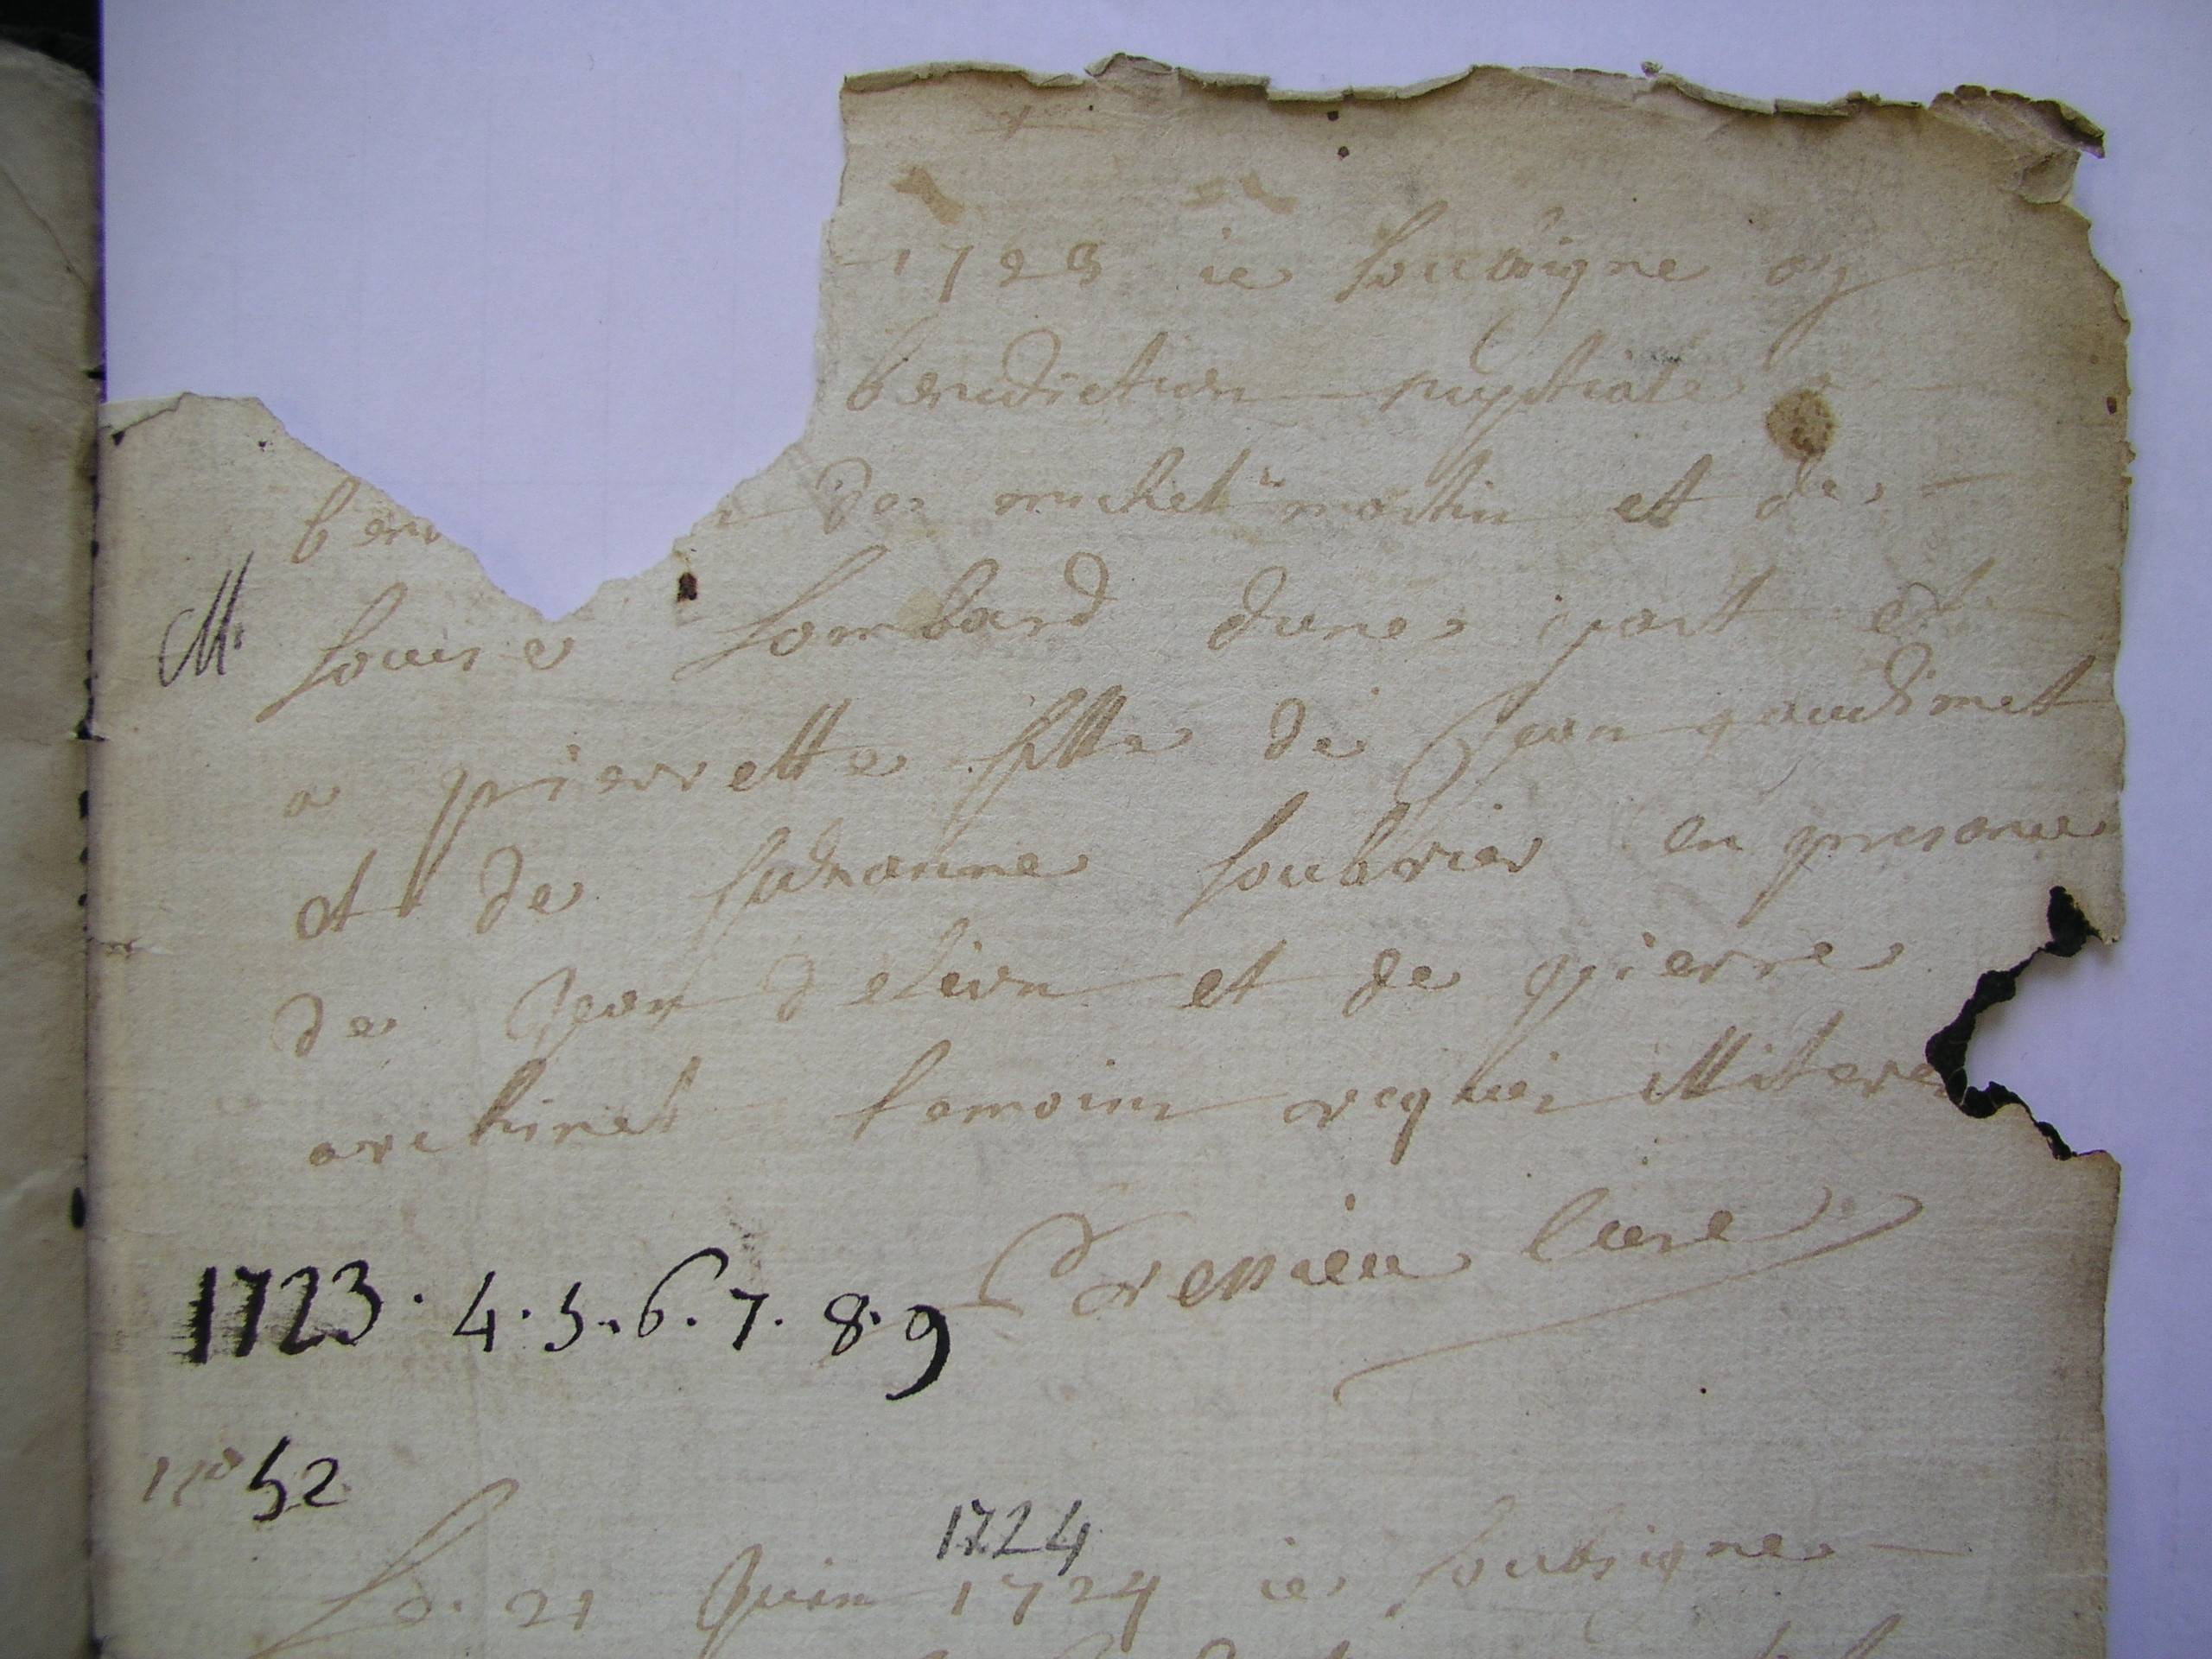 1723 ie soubsigne ay
benediction nuptiale a
ben de michel martin et de
M. louise lombard dune part et
a pierrette fille de Jean gaudimet
et de suzanne soubrier en presence
de Jean delion et de pierre
archinet temoins requis illitere
cure
1723. 4. 5. 6. 7. 8. 9
no 52
1724
Le 21 Juin 1724 ie soubsigne